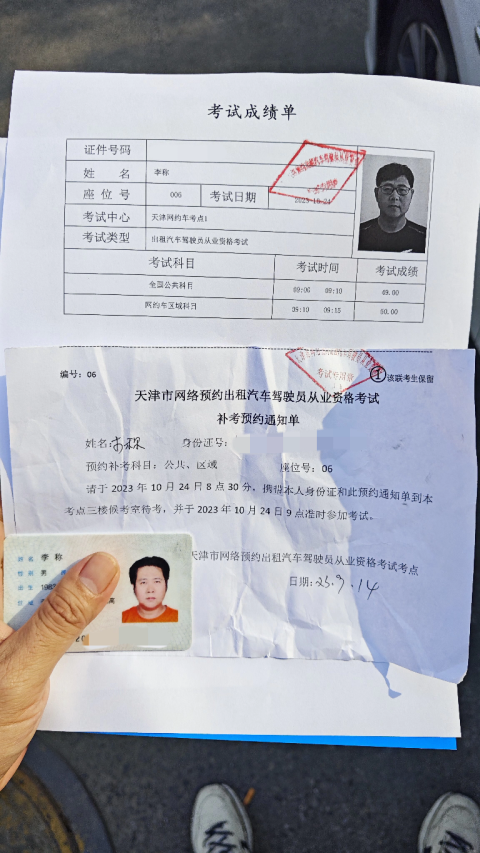 考试成绩单
证件号码
姓 名 李称
座位号 006 考试日期 2023-10-24
考试中心 天津网约车考点1
考试类型 出租汽车驾驶员从业资格考试
考试科目 考试时间 考试成绩
全国公共科目 09:00 09:10 49.00
网约车区域科目 09:10 09:15 80.00
编号：06 ① 该联考生保留
考试专用章
天津市网络预约出租汽车驾驶员从业资格考试
补考预约通知单
姓名：李称 身份证号：
预约补考科目：公共、区域 座位号：06
请于 2023 年 10 月 24 日 8 点 30 分，携带本人身份证和此预约通知单到本
考点三楼候考室待考，并于 2023 年 10 月 24 日 9 点准时参加考试。
天津市网络预约出租汽车驾驶员从业资格考试考点
日期：23.9.14
姓名 李 称
性别 男